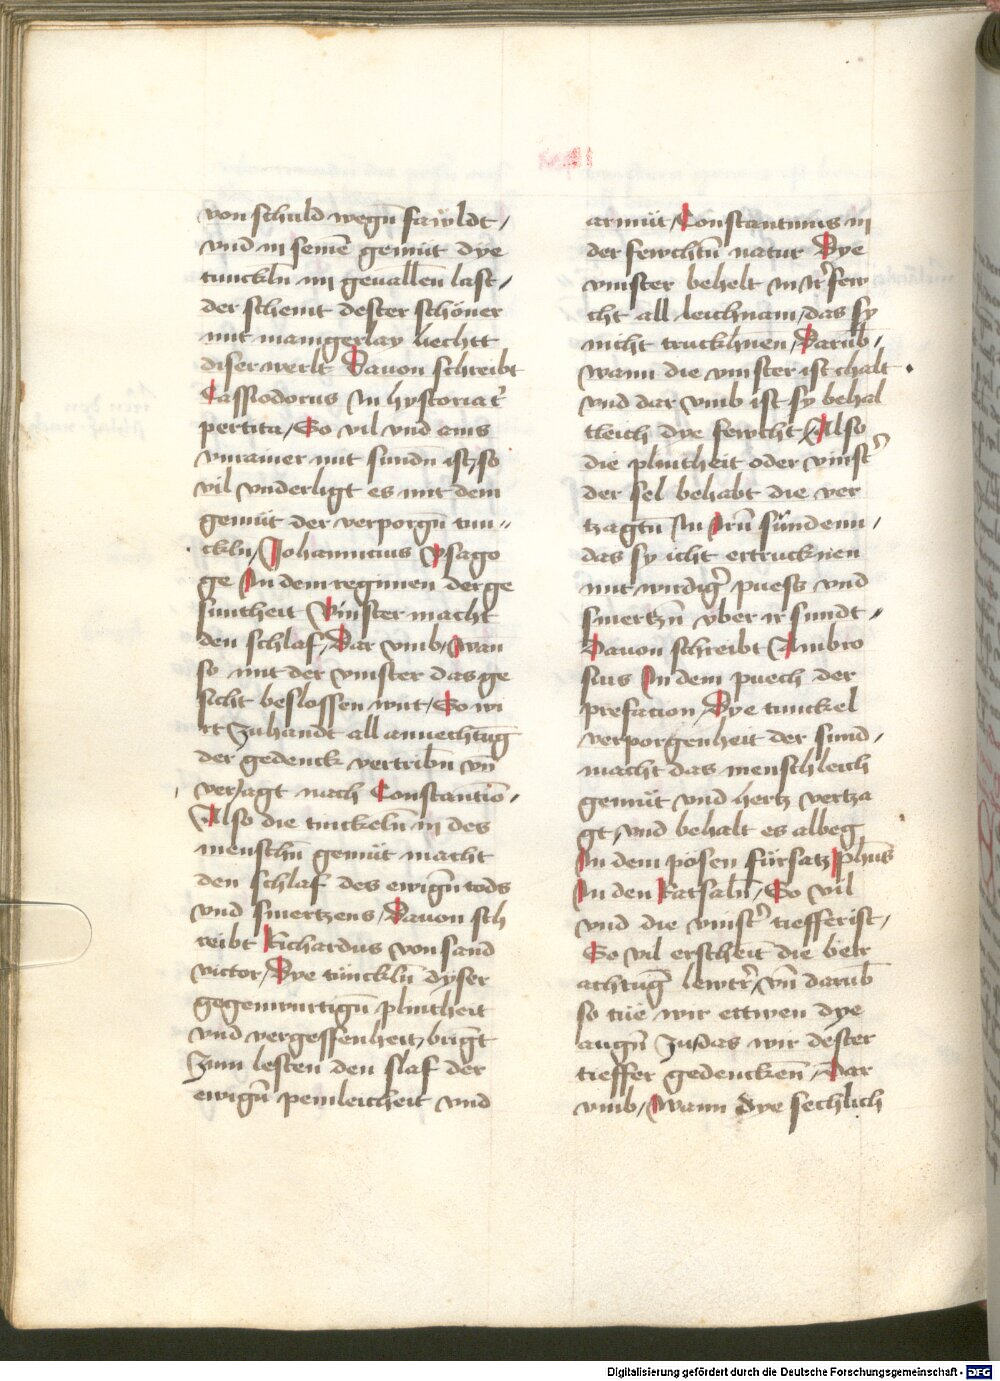 von schuld wegn̄ fawldt /
vnd in seinē gemüt dye
tunckln̄ im geuallen̄ last /
der scheint dester schöner
mit manigerlay liechtt
diser werlt Dauon schreibt
Cassiodorus In hystoria tr̓
pertita / So vil vnd ains
vnrainer mit sundn̄ ist / so
vil vnderligt es mit dem
gemüt der verporgn̄ tun=
ckln / Johannicius Ysago
ge In dem regimen der ge
suntheit Vinster macht
den schlaf / Dar vmb / Wan
so mit der vinster das ge
sicht beslossen wirt / So wi
rt zuhandt all anuechtūg
der gedenck vertribn̄ vn̄
veriagt nach Constantiō /
Also die tunckeln̄ in des
menschn̄ gemüt macht
den schlaf des ewign̄ tods
vnd smertzens / Dauon sch
reibt Richardus von sand
victor / Dye tünckln̄ dyser
gegenwurtign̄ plintheit
vnd vergessenheit / bringt
zum lesten den slaf der
ewign̄ peinleicheit vnd
armüt / Constantinus in
der fewchtn̄ natur Dye
vinster behelt in ir̓ few
cht all leichnam / das sy
nicht trucknen / Darūb /
wann die vinster ist chalt
vnd dar vmb ist sy behal
tleich dye fewcht / Also
die plintheit oder vinst̓
der sel behabt die ver
tzagtn̄ In Irn̄ sünden /
das sy icht ertrucknen
mit wirdig̓ puess vnd
smertzn̄ vber ir sundt /
Dauon schreibt Ambro
sius In dem puech der
prefacion / Dye tunckel
verporgenheit der sund /
macht das menschleich
gemüt vnd hertz vertza
gt / vnd behalt es albeg
In dem pösen fürsatz Phūs
In den Ratsaln̄ / So vil
vnd die vinst̓ tieffer ist /
So vil erscheit die betr
achtūg lewtr̓ / vn̄ darūb
so tüe wir ettwen dye
augn̄ zu / das wir dester
tieffer gedencken̄ / Dar
vmb / Wann dye sechlich
Digitalisierung gefördert durch die Deutsche Forschungsgemeinschaft - DFG